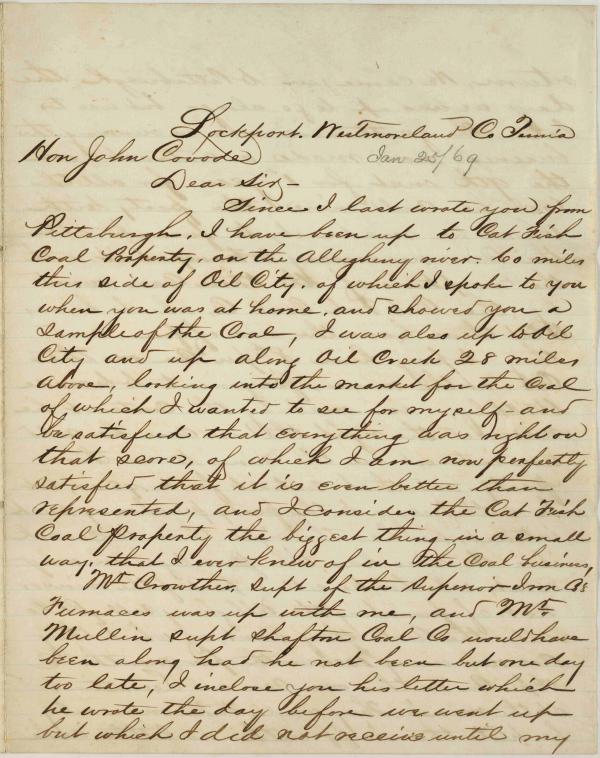 Lockport. Westmoreland Co Penn'a
Hon John Covode Jan 25/69
Dear Sir –
Since I last wrote you from
Pittsburgh, I have been up to Cat Fish
Coal Property, on the Allegheny river. 60 miles
this side of Oil City. of which I spoke to you
when you was at home, and showed you a
sample of the Coal, I was also up to Oil
City and up along Oil Creek 28 miles
above, looking into the market for the Coal
of which I wanted to see for myself – and
be satisfied that everything was right on
that score, of which I am now perfectly
satisfied that it is even better than
represented, and I consider the Cat Fish
Coal Property the biggest thing – in a small
way, that I ever knew of in the Coal business,
Mr Crowther. supt of the Superior Iron Co's
Furnaces was up with me, and Mr.
Mullin supt Shafton Coal Co would have
been along had he not been but one day
too late, I inclose you his letter which
he wrote the day before we went up
but which I did not receive until my